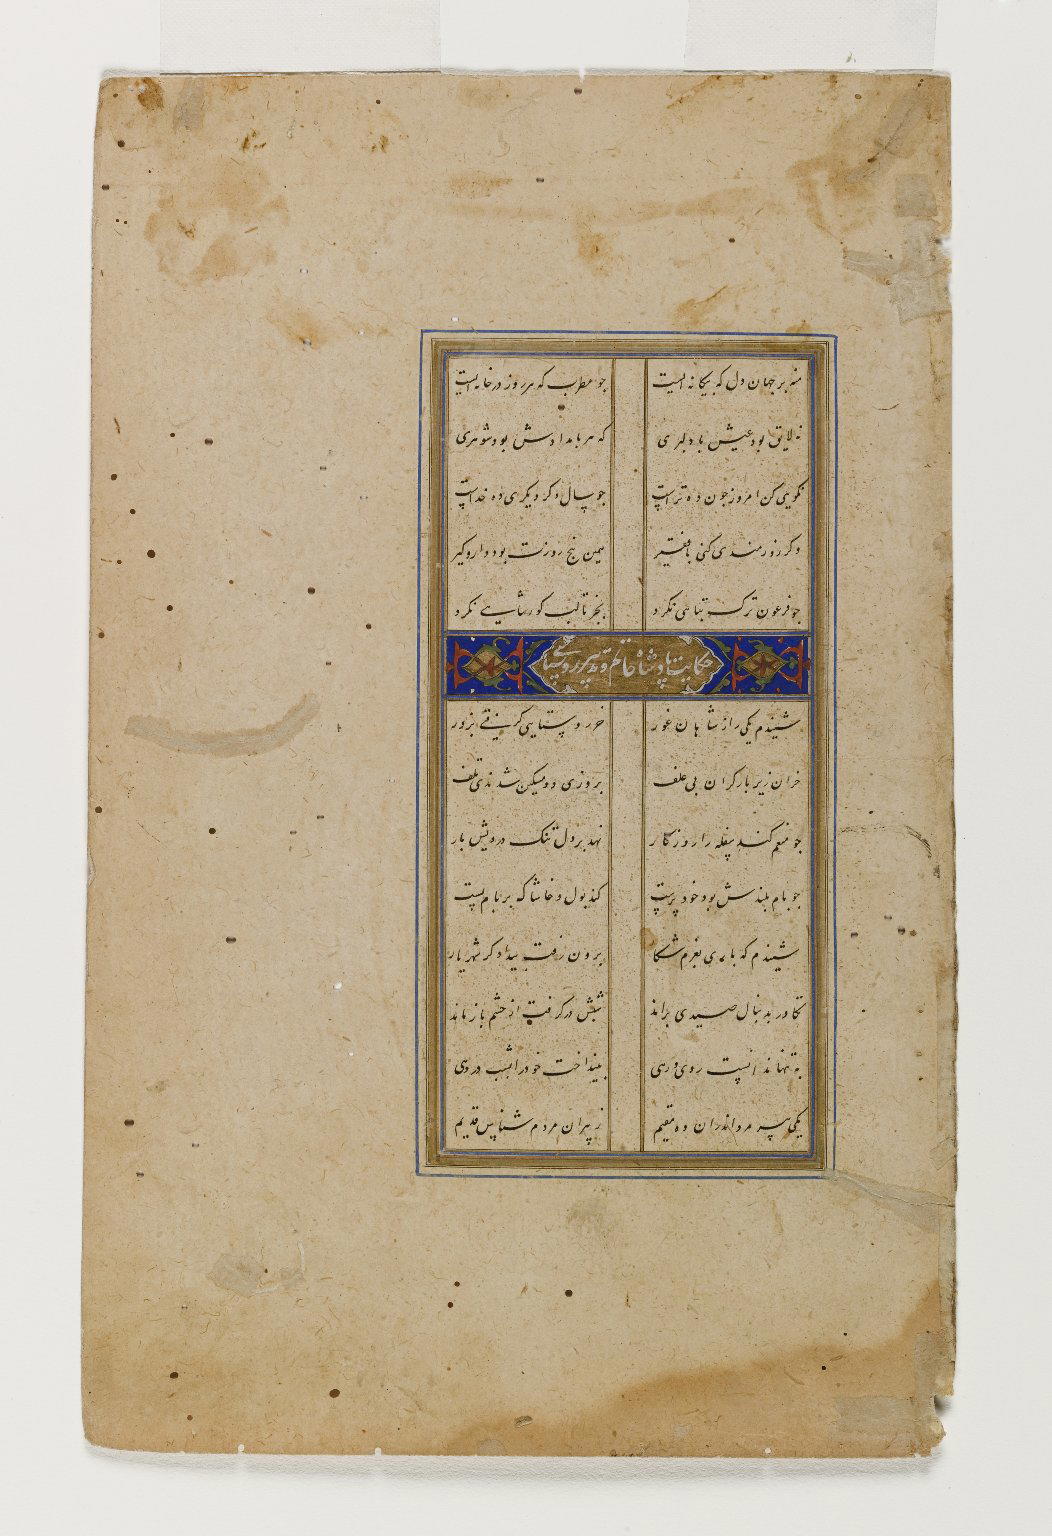 منه بر جهان دل که بیگانه ایست چو مطرب که هر روز در خانه ایست
نه لایق بود عیش با دلبری که هر بامدادش بود شوهری
نکویی کن امروز چون ده تراست چو سال دگر دیگری ده خداست
وگر زورمندی کنی با فقیر همین پنج روزت بود دار و گیر
چو فرعون ترک تباهی نکرد بجز تا لب گور شاهی نکرد
حکایت پادشاه پیر روستایی
شنیدم یکی را ز شاهان غور خر روستایی گرفتی بزور
خران زیر بار گران بی علف بروزی دو مسکین شدندی تلف
چو منعم کند سفله را روزگار نهد بر دل تنگ درویش بار
چو بام بلندش بود خود پرست کند بول و خاشاک بر بام پست
شنیدم که باری بعزم شکار برون رفت بیدادگر شهریار
تکاور بدنبال صیدی براند شبش در گرفت از حشم باز ماند
به تنها ندانست روی و رهی بینداخت خود را شب در دهی
یکی پیر مرد اندران ده مقیم ز پیران مردم شناس قدیم